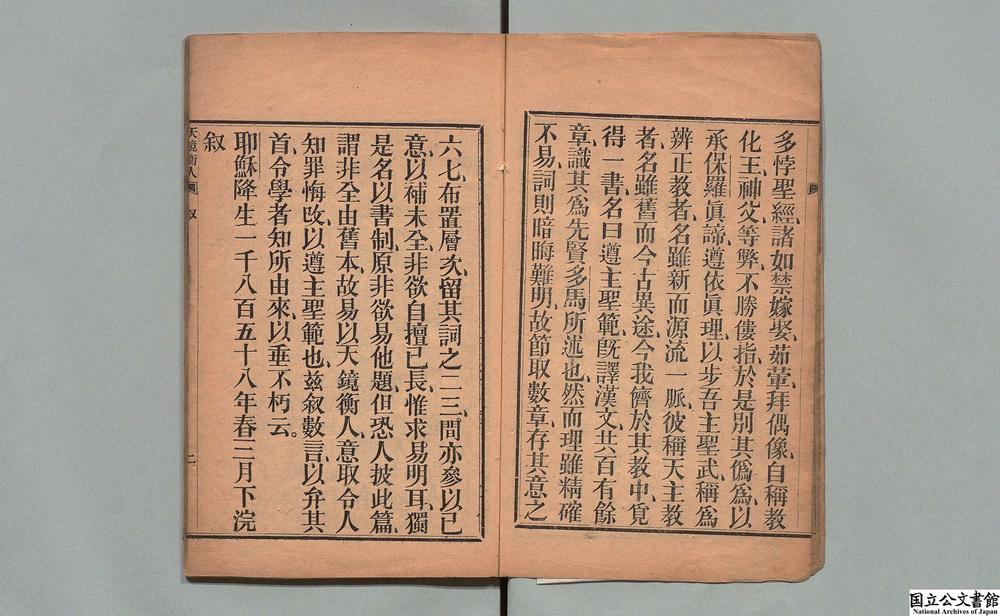 多悖聖經、諸如禁嫁娶、茹葷、拜偶像、自稱教
化王、神父等弊、不勝僂指、於是別其僞爲、以
承保羅眞諦、遵依眞理、以步吾主聖武、稱爲
辨正教者、名雖新而源流一脈、彼稱天主教
者、名雖舊而今古異途、今我儕於其教中、覓
得一書、名曰遵主聖範、旣譯漢文、共百有餘
章、識其爲先賢多馬所述也、然而理雖精確
不易、詞則暗晦難明、故節取數章、存其意之
六七、布置層次、留其詞之二三、間亦參以己
意、以補未全、非欲自擅己長、惟求易明耳、獨
是名以書制、原非欲易他題、但恐人披此篇、
謂非全由舊本、故易以天鏡衡人、意取令人
知罪悔改、以遵主聖範也、兹叙數言、以弁其
首、令學者知所由來、以垂不朽云。
耶穌降生一千八百五十八年春三月下浣
叙
天鏡衡人
叙
二
国立公文書館
National Archives of Japan